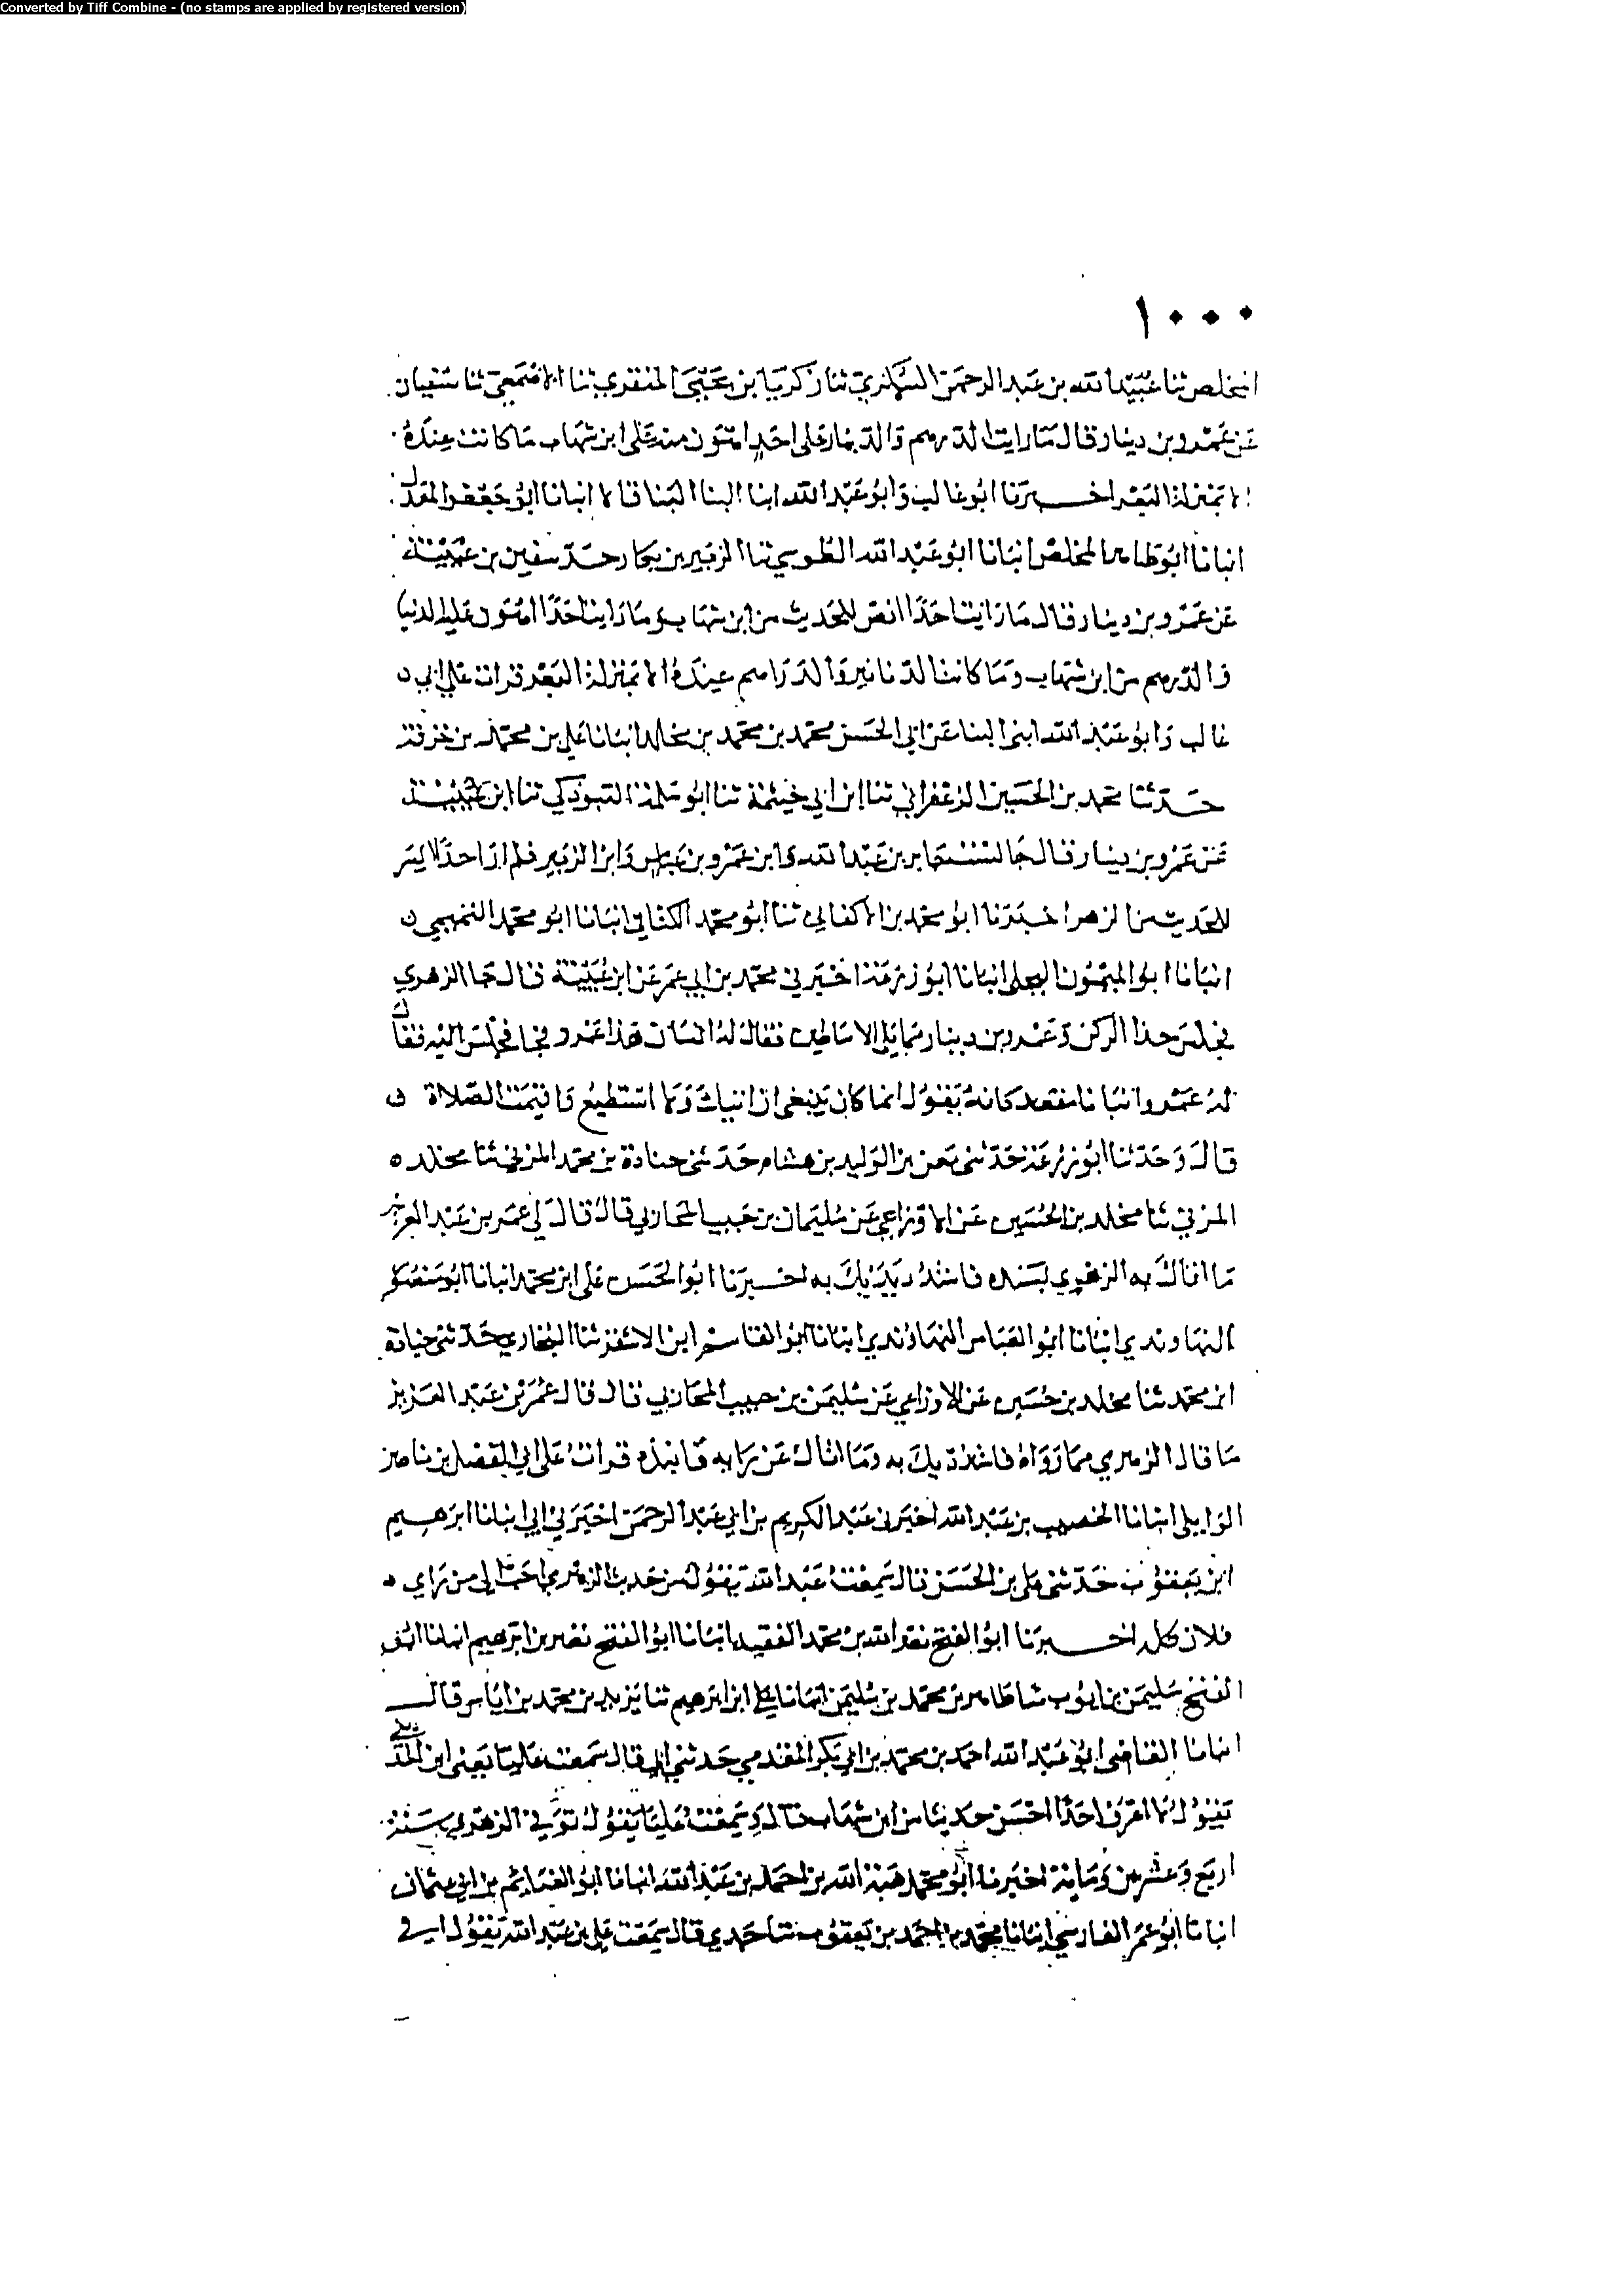 Converted by Tiff Combine - (no stamps are applied by registered version)
١٠٠٠
المخلص ثنا عبيد الله بن عبد الرحمن السكري ثنا زكريا بن يحيى المنقري ثنا الاصمعي ثنا سفيان
عن عمرو بن دينار قال ما رايت الدرهم والدينار على احد اهون منه على ابن شهاب ما كانت عنده
الا بمنزلة البعر اخبرنا ابو غالب وابو عبد الله ابنا البنا قالا انبانا ابو جعفر المعدل
انبانا ابو طاهر المخلص انبانا ابو عبد الله الطوسي ثنا الزبير بن بكار حدثني سفين بن عيينة
عن عمرو بن دينار قال ما رايت احدا انص للحديث من ابن شهاب وما رايت احدا اهون عليه الدنيا
والدرهم من ابن شهاب وما كانت الدنانير والدراهم عنده الا بمنزلة البعر قرات على ابي
غالب وابو عبد الله ابني البنا عن ابي الحسن محمد بن محمد بن مخلد انبانا علي بن محمد بن خزفة
حدثنا محمد بن الحسين الزعفراني ثنا ابن ابي خيثمة ثنا ابو سلمة التبوذكي ثنا ابن عيينة
عن عمرو بن دينار قال جالست جابر بن عبد الله وابن عمرو بن عباس وابن الزبير فلم ار احدا
للحديث من الزهر اخبرنا ابو محمد بن الاكفاني ثنا ابو محمد الكتاني انبانا ابو محمد التميمي
انبانا ابو الميمون البجلي انبانا ابو زرعة اخبرني محمد بن ابي عمر عن ابن عيينة قال جا الزهري
فجلس حذا الركن وعمرو بن دينار مما يلي الاساطين فقال له انسان هذا عمرو فجا فجلس اليه فقال
له عمرو مقعد كانه يقول انما كان ينبغي ان اتيك ولا استطيع واقيمت الصلاة
قال وحدثنا ابو زرعة حدثني معن بن الوليد بن هشام حدثني جنادة بن محمد المزني ثنا مخلد
المزني ثنا مخلد بن الحسين عن الاوزاعي عن سليمان بن حبيب المحاربي قال قال لي عمر بن عبد العزيز
ما اتاك به الزهري بسنده فاشدد يديك به اخبرنا ابو الحسن علي ابن محمد انبانا ابو منصور
النهاوندي انبانا ابو العباس النهاوندي انبانا ابو القاسم ابن الاشقر ثنا البخاري حدثني جنادة
ابن محمد ثنا مخلد بن حسين عن الاوزاعي عن سليمن بن حبيب المحاربي قال قال عمر بن عبد العزيز
ما قال الزهري مما رواه فاشدد يديك به وما اتاك عن رايه فانبذه قرات على ابي الفضل بن ناصر
الوايلي انبانا الخصيب بن عبد الله اخبرني عبد الكريم بن ابي عبد الرحمن اخبرني ابي انبانا ابرهيم
ابن يعقوب حدثني علي بن الحسن قال سمعت عبد الله يقول من حديث الزهري احب الي من راي
فلان كله اخبرنا ابو الفتح نصر الله بن محمد الفقيه انبانا ابو الفتح نصر بن ابرهيم انبانا ابو
الفتح سليمن بن ايوب ثنا طاهر بن محمد بن سليمن انبانا علي ابن ابرهيم ثنا يزيد بن محمد بن اياس قال
انبانا القاضي ابو عبد الله احمد بن محمد بن ابي بكر المقدمي حدثني ابي قال سمعت عليا يعني ابن المديني
يقول ما اعرف احدا احسن حديثا من ابن شهاب قال وسمعت عليا يقول توفي الزهري سنة
اربع وعشرين ومائة اخبرنا ابو محمد هبة الله بن احمد بن عبد الله انبانا ابو الغنايم بن ابي عثمان
انبانا ابو عمر الفارسي انبانا محمد بن احمد بن يعقوب ثنا جدي قال سمعت علي بن عبد الله يقول